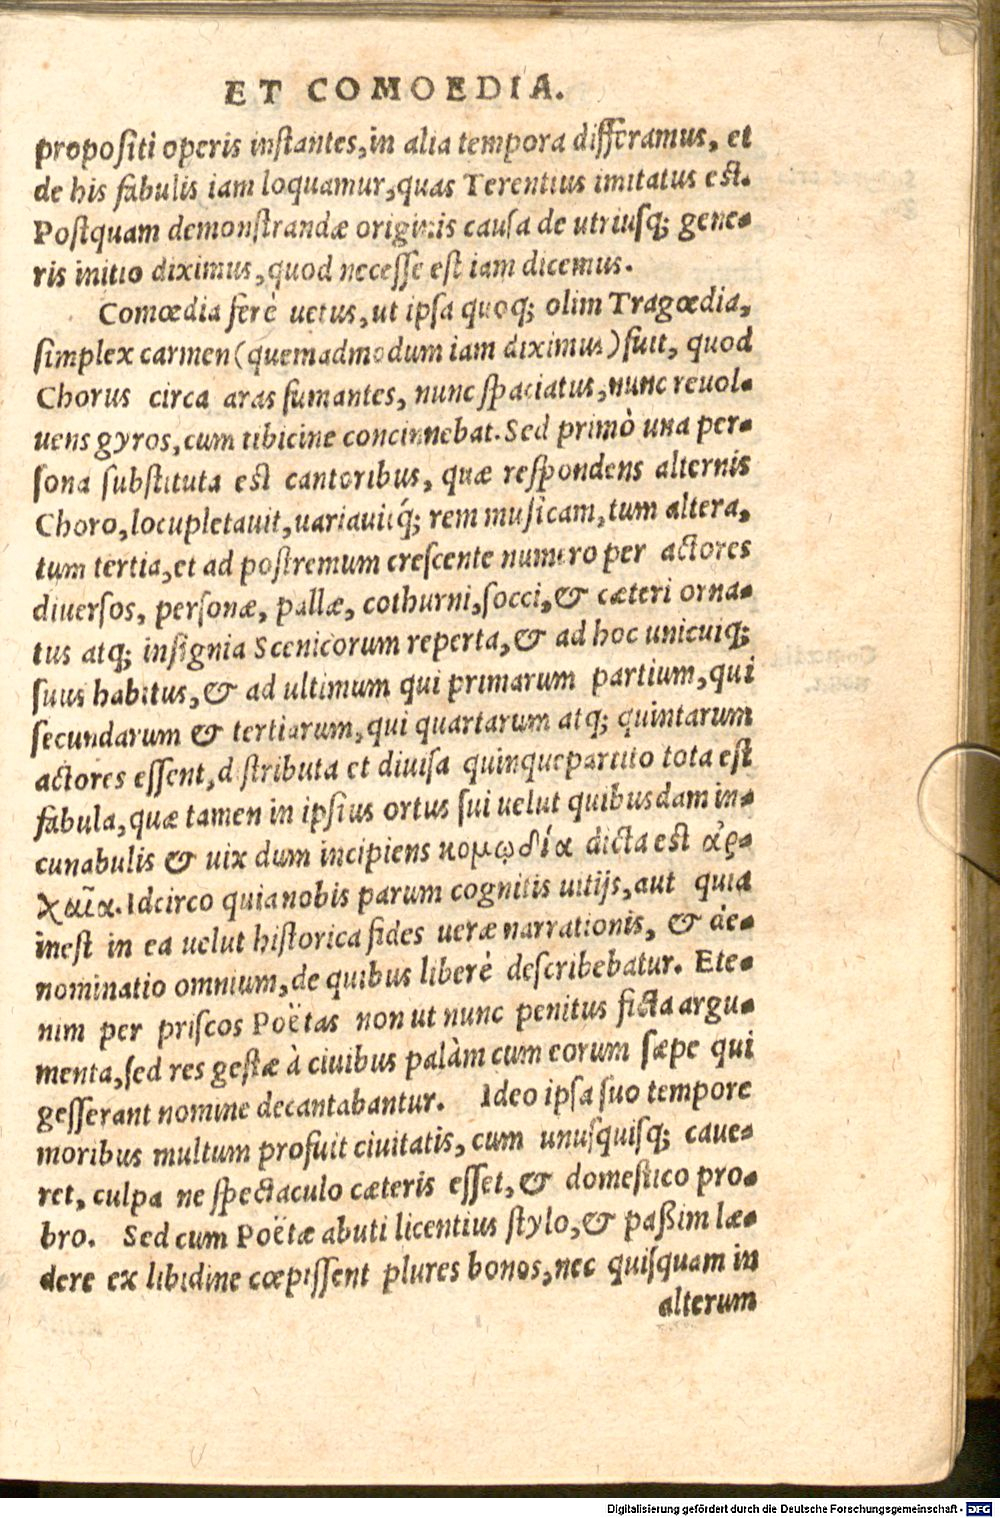 ET COMOEDIA.
propositi operis instantes, in alia tempora differamus, et
de his fabulis iam loquamur, quas Terentius imitatus est.
Postquam demonstrandæ originis causa de utriusq; gene-
ris initio diximus, quod necesse est iam dicemus.
Comœdia ferè uetus, ut ipsa quoq; olim Tragœdia,
simplex carmen (quemadmodum iam diximus) fuit, quod
Chorus circa aras fumantes, nunc spaciatus, nunc reuol-
uens gyros, cum tibicine concinnebat. Sed primò una per-
sona substituta est cantoribus, quæ respondens alternis
Choro, locupletauit, uariauitq́; rem musicam, tum altera,
tum tertia, et ad postremum crescente numero per actores
diuersos, personæ, pallæ, cothurni, socci, & cæteri orna-
tus atq; insignia Scenicorum reperta, & ad hoc unicuiq;
suus habitus, & ad ultimum qui primarum partium, qui
secundarum & tertiarum, qui quartarum atq; quintarum
actores essent, distributa et diuisa quinquepartito tota est
fabula, quæ tamen in ipsius ortus sui uelut quibusdam in-
cunabulis & uix dum incipiens κομῳδία dicta est ἀρ-
χαῖα. Idcirco quia nobis parum cognitis uitijs, aut quia
inest in ea uelut historica fides ueræ narrationis, & de-
nominatio omnium, de quibus liberè describebatur. Ete-
nim per priscos Poëtas non ut nunc penitus ficta argu-
menta, sed res gestæ à ciuibus palàm cum eorum sæpe qui
gesserant nomine decantabantur. Ideo ipsa suo tempore
moribus multum profuit ciuitatis, cum unusquisq; caue-
ret, culpa ne spectaculo cæteris esset, & domestico pro-
bro. Sed cum Poëtæ abuti licentius stylo, & paßim læ-
dere ex libidine cœpissent plures bonos, nec quisquam in
alterum
Digitalisierung gefördert durch die Deutsche Forschungsgemeinschaft - DFG